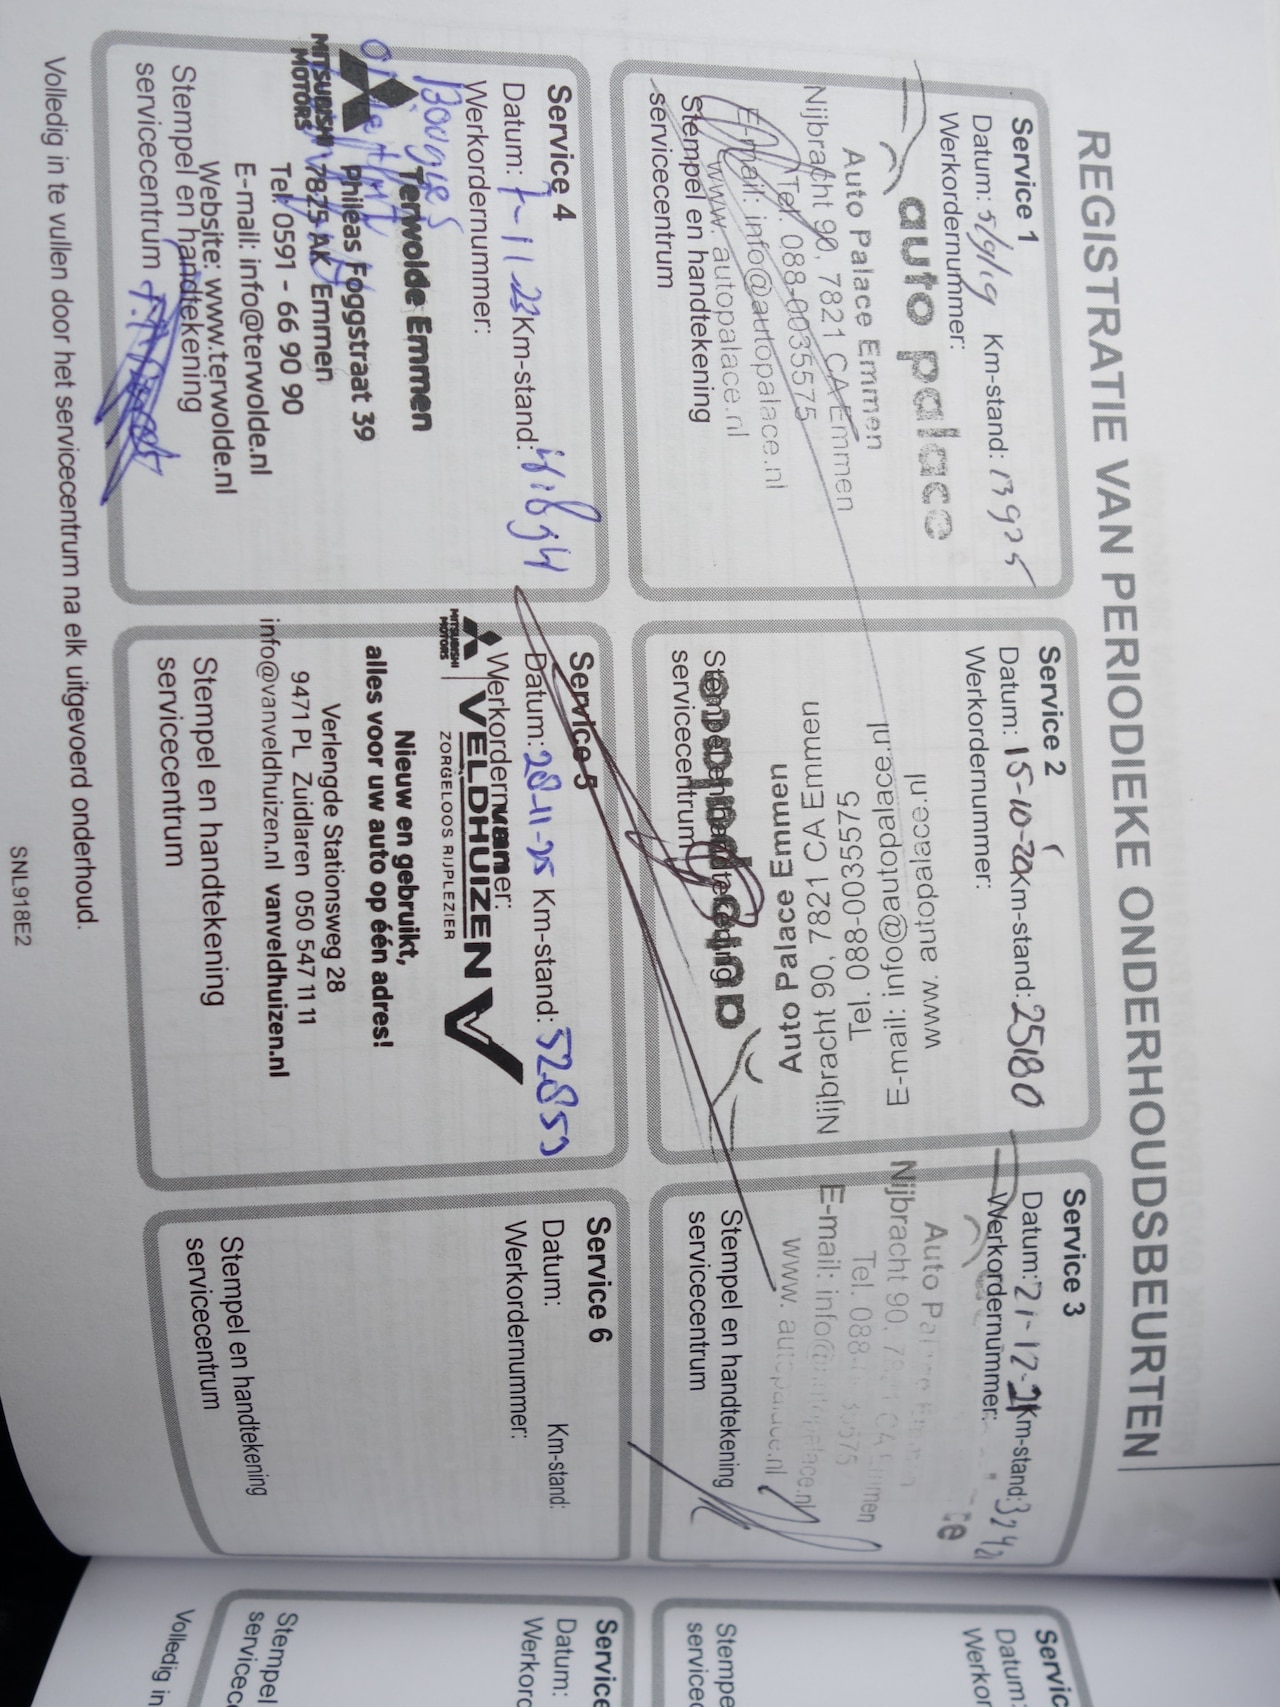 REGISTRATIE VAN PERIODIEKE ONDERHOUDSBEURTEN
Service 1
Datum: 5/9/19 Km-stand: 13925
Werkordernummer:
auto palace
Auto Palace Emmen
Nijbracht 90, 7821 CA Emmen
Tel. 088-0035575
E-mail: info@autopalace.nl
www. autopalace.nl
Stempel en handtekening
servicecentrum
Service 2
Datum: 15-10-20 Km-stand: 25180
Werkordernummer:
www. autopalace.nl
E-mail: info@autopalace.nl
Tel. 088-0035575
Nijbracht 90, 7821 CA Emmen
Auto Palace Emmen
auto palace
Stempel en handtekening
servicecentrum
Service 3
Datum: 21-12-21 Km-stand:
Werkordernummer:
Auto Palace Emmen
Nijbracht 90, 7821 CA Emmen
Tel. 088-0035575
E-mail: info@autopalace.nl
www. autopalace.nl
Stempel en handtekening
servicecentrum
Service 4
Datum: 7-11-23 Km-stand:
Werkordernummer:
Bougies
MITSUBISHI
MOTORS
Terwolde Emmen
Phileas Foggstraat 39
7825 AK Emmen
Tel. 0591 - 66 90 90
E-mail: info@terwolde.nl
Website: www.terwolde.nl
Stempel en handtekening
servicecentrum
Service 5
Datum: 28-11-25 Km-stand: 52859
Werkordernummer:
MITSUBISHI
MOTORS
van
VELDHUIZEN
ZORGELOOS RIJPLEZIER
Nieuw en gebruikt,
alles voor uw auto op één adres!
Verlengde Stationsweg 28
9471 PL Zuidlaren 050 547 11 11
info@vanveldhuizen.nl vanveldhuizen.nl
Stempel en handtekening
servicecentrum
Service 6
Datum: Km-stand:
Werkordernummer:
Stempel en handtekening
servicecentrum
Volledig in te vullen door het servicecentrum na elk uitgevoerd onderhoud.
SNL918E2
Datum:
Stempel
Service
Datum:
Stempel
Volledig in